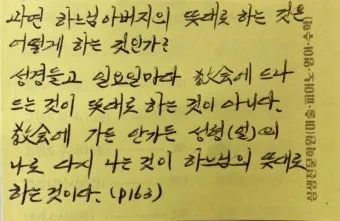 과연 하느님아버지의 뜻대로 하는 것은
어떻게 하는 것인가?
성경들고 일요일마다 敎會에 드나
드는 것이 뜻대로 하는 것이 아니다.
敎會에 가든 안가든 성령(얼)의
나로 다시 나는 것이 하느님의 뜻대로
하는것이다. (p163)
상생전문학원(미술·피아노·영어·수학)